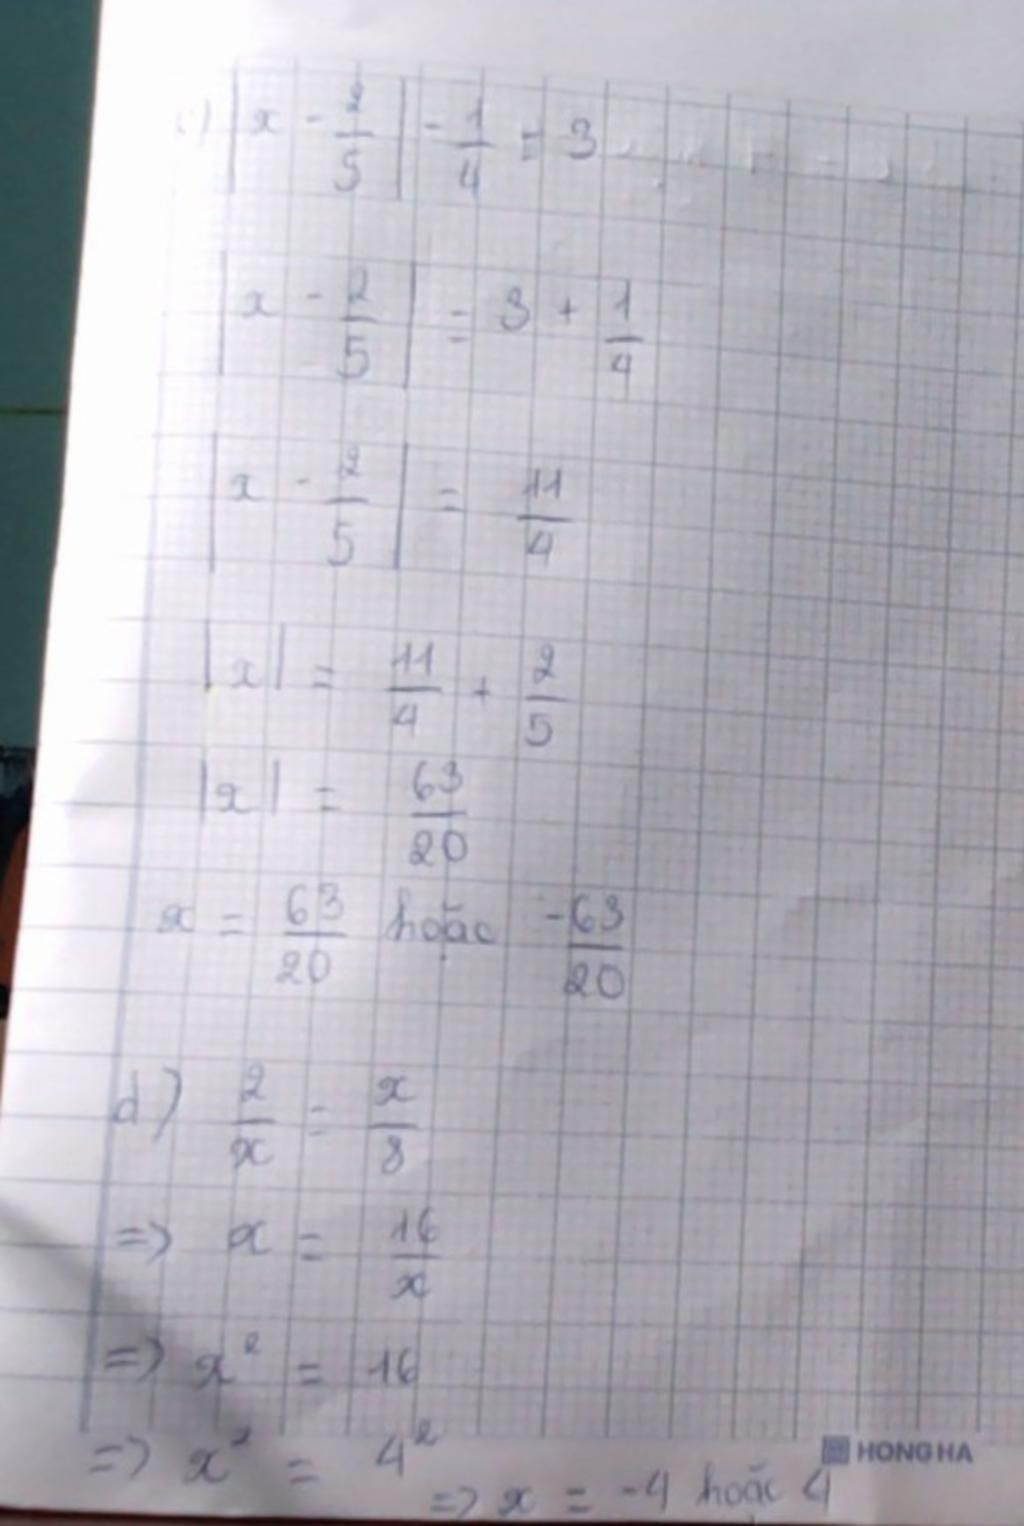 c) |x - 2/5| - 1/4 = 3
|x - 2/5| = 3 + 1/4
|x - 2/5| = 11/4
|x| = 11/4 + 2/5
|x| = 63/20
x = 63/20 hoặc -63/20
d) 2/x = x/8
=> x = 16/x
=> x² = 16
=> x² = 4²
=> x = -4 hoặc 4
HONG HA